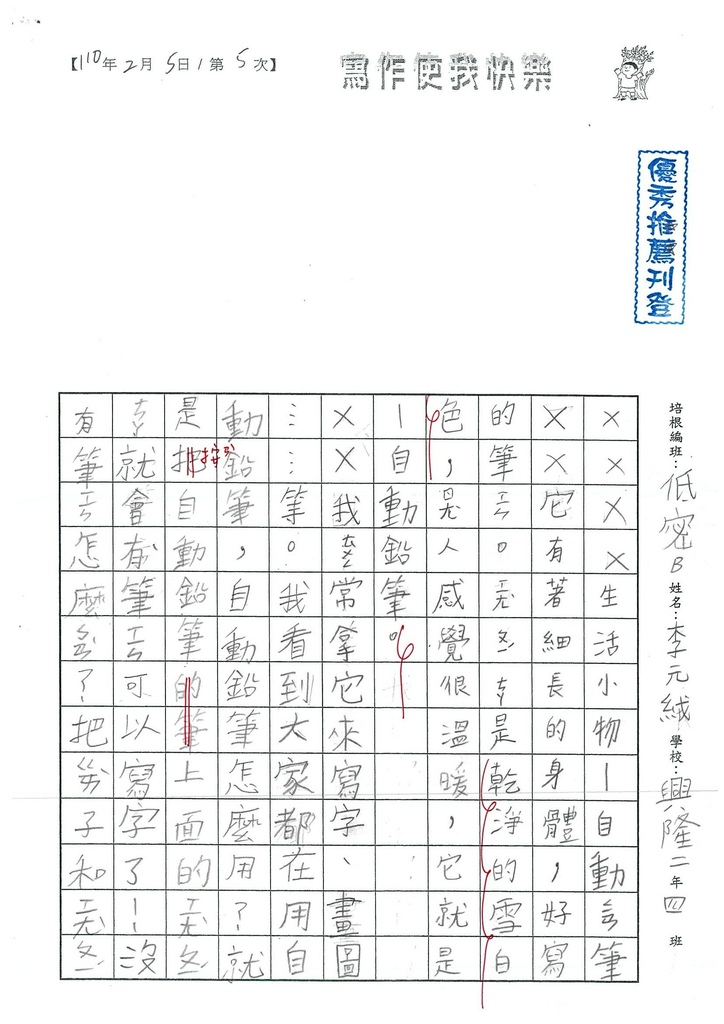 【110年2月5日/第5次】
寫作使我快樂
優秀推薦刊登
培根編班：低密B 姓名：李元絨 學校：興隆二年四班
××××生活小物—自動筆
××它有著細長的身體，好寫
的筆。是乾淨的雪白
色，人感覺很溫暖，它就是
—自動鉛筆。
××我常拿它來寫字、畫圖
……等。我看到大家都在用自
動鉛筆，自動鉛筆怎麼用？就
是把自動鉛筆的筆上面的
就會有筆可以寫字了！沒
有筆怎麼？把子和
按